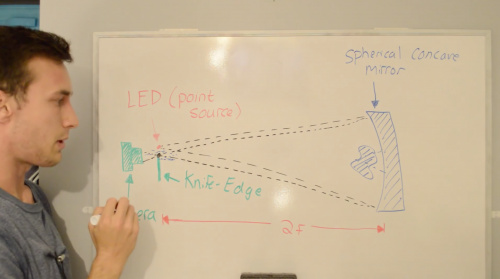 Spherical Concave
Mirror
LED (point
source)
Knife-Edge
2f